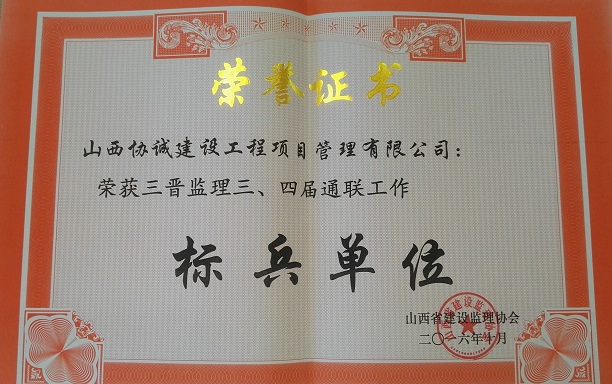 荣誉证书
山西协诚建设工程项目管理有限公司：
荣获三晋监理三、四届通联工作
标兵单位
山西省建设监理协会
二〇一六年十月